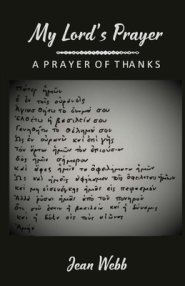 My Lord's Prayer
A PRAYER OF THANKS
Πάτερ ἡμῶν
ὁ ἐν τοῖς οὐρανοῖς
Ἁγιασθήτω τὸ ὄνομά σου
Ἐλθέτω ἡ βασιλεία σου
Γενηθήτω τὸ θέλημά σου
Ὡς ἐν οὐρανῷ καὶ ἐπὶ γῆς
Τὸν ἄρτον ἡμῶν τὸν ἐπιούσιον
δὸς ἡμῖν σήμερον
καὶ ἄφες ἡμῖν τὰ ὀφειλήματα ἡμῶν
Ὡς καὶ ἡμεῖς τοῖς ἡμῶν
καὶ μὴ ἡμᾶς εἰς
Ἀλλὰ ῥῦσαι ἡμᾶς ἀπὸ τοῦ πονηροῦ
Ὅτι σοῦ ἐστιν ἡ βασιλεία καὶ ἡ δύναμις
καὶ ἡ δόξα εἰς τοὺς αἰῶνας
Ἀμήν
Jean Webb